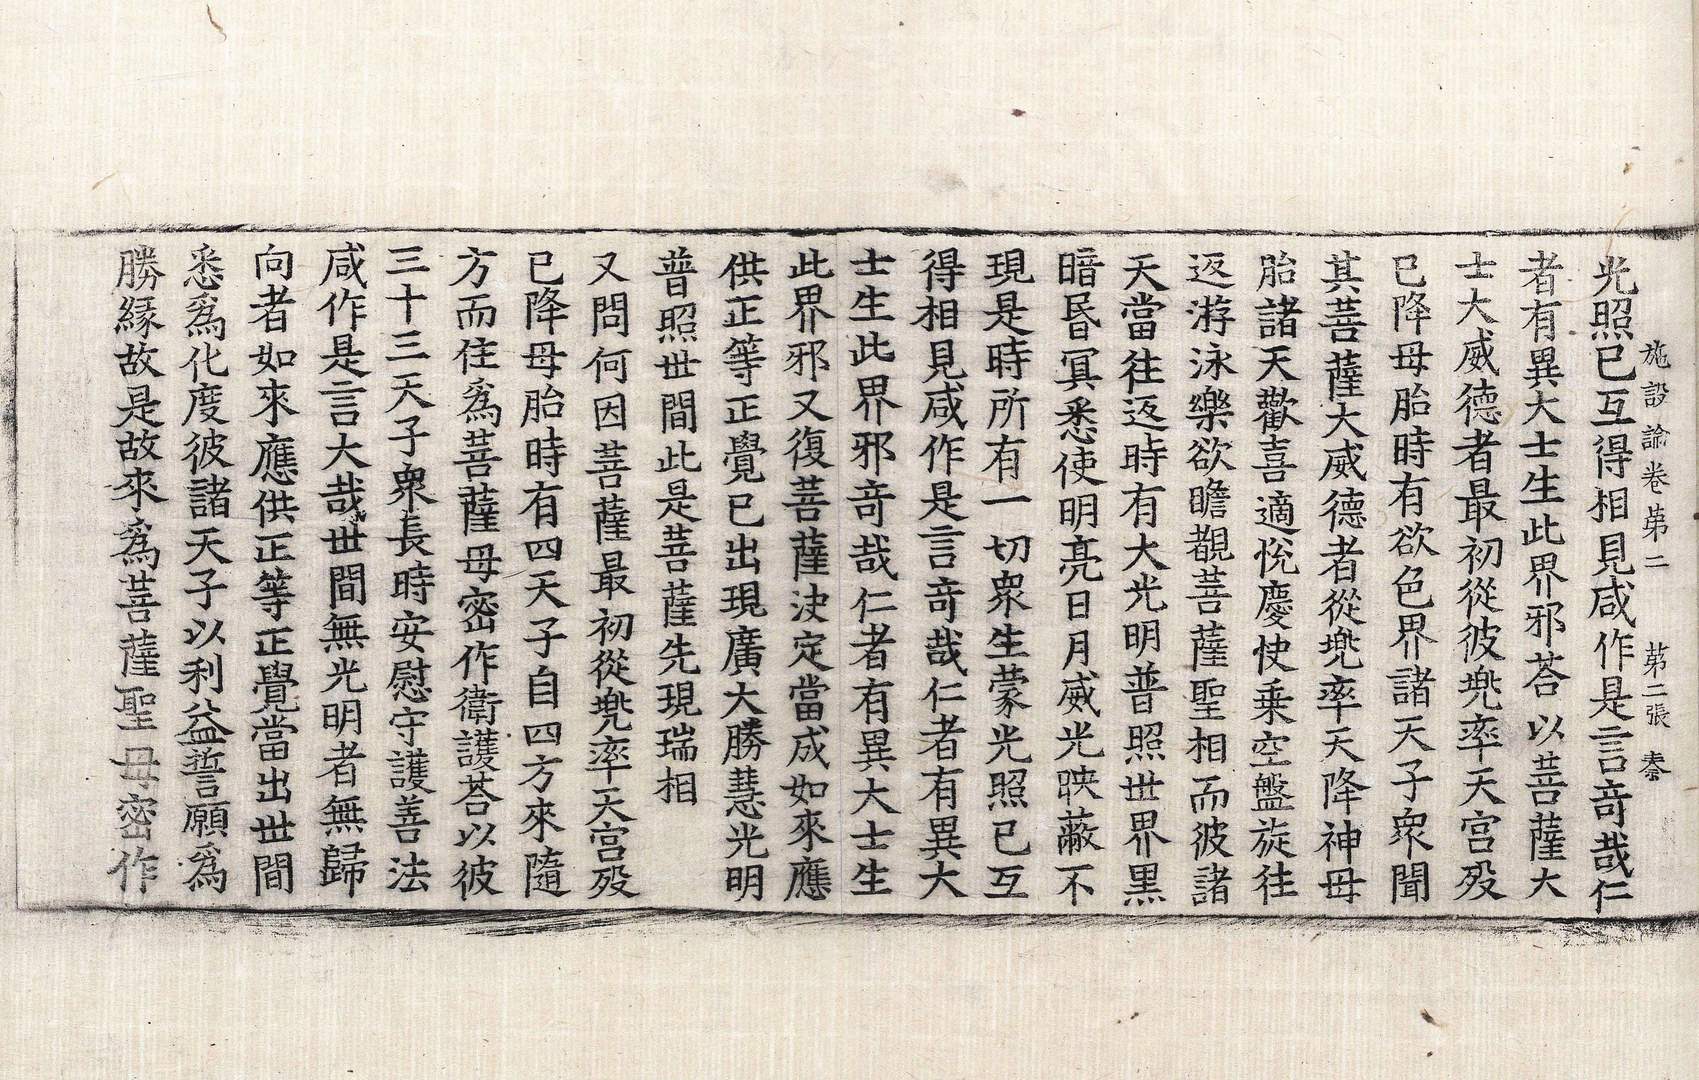 施設論卷第二　第二張　奏
光照已互得相見咸作是言奇哉仁
者有異大士生此界邪荅以菩薩大
士大威德者最初從彼兠率天宮歿
已降母胎時有欲色界諸天子衆聞
其菩薩大威德者從兠率天降神母
胎諸天歡喜適恱慶快乗空盤旋往
返游泳樂欲瞻覩菩薩聖相而彼諸
天當往返時有大光明普照世界黒
暗昬冥悉使明亮日月威光映蔽不
現是時所有一切衆生蒙光照已互
得相見咸作是言奇哉仁者有異大
士生此界邪奇哉仁者有異大士生
此界邪又復菩薩決定當成如來應
供正等正覺已出現廣大勝慧光明
普照世間此是菩薩先現瑞相
又問何因菩薩最初從兠率天宮歿
已降母胎時有四天子自四方來隨
方而住爲菩薩母密作衛護荅以彼
三十三天子衆長時安慰守護善法
咸作是言大哉世間無光明者無歸
向者如來應供正等正覺當出世間
悉爲化度彼諸天子以利益誓願爲
勝緣故是故來爲菩薩聖母密作